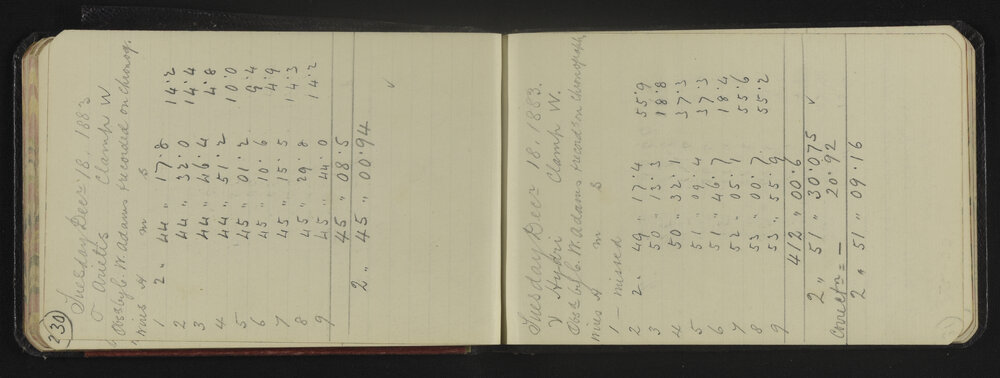 230
Tuesday Decr 18. 1883
τ Arietis Clamp W
Obs by C. W. Adams & recorded on Chronog.
Wires H m s
1 2 " 44 " 17.8 14.2
2 44 " 32.0 14.4
3 44 " 46.4 4.8
4 44 " 51.2 10.0
5 45 " 01.2 9.4
6 45 " 10.6 4.9
7 45 " 15.5 14.3
8 45 " 29.8 14.2
9 45 " 44.0
45 " 08.5
2 " 45 " 00.94
Tuesday Decr 18. 1883.
Hydri Clamp W.
Obs by C. W. Adams & record on Chronograph
Wires H m s
1 — missed
2 2 " 49 " 17.4 55.9
3 50 " 13.3 18.8
4 50 " 32.1 37.3
5 51 " 09.4 37.3
6 51 " 46.7 18.4
7 52 " 05.1 55.6
8 53 " 00.7 55.2
9 53 " 55.9
412 " 00.6
2 " 51 " 30.075
Correctn = — 20.92
2 " 51 " 09.16